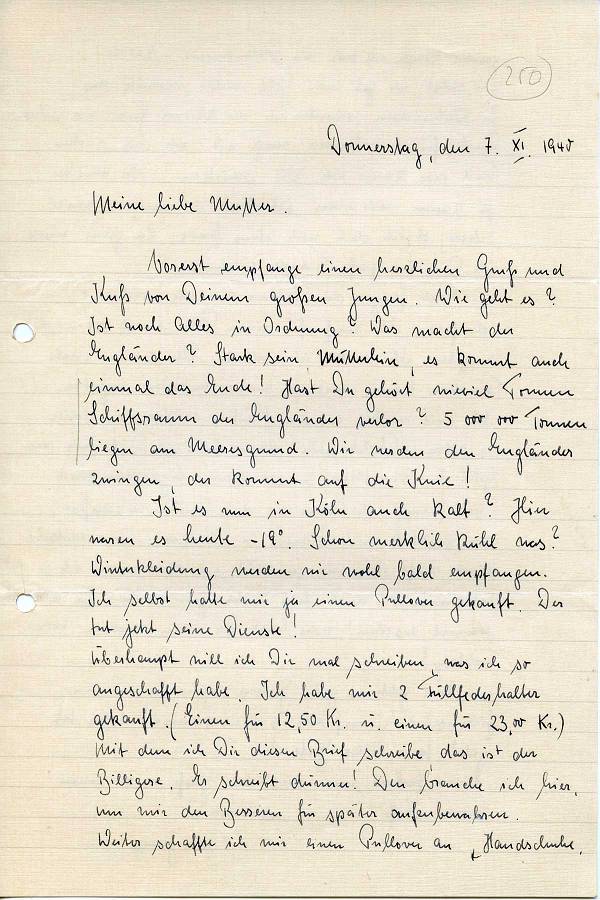 250
Donnerstag, den 7. XI. 1940
Meine liebe Mutter.
Vorerst empfange einen herzlichen Gruß und
Kuß von Deinem großen Jungen. Wie geht es?
Ist noch Alles in Ordnung? Was macht der
Engländer? Stark sein, Mütterlein, es kommt auch
einmal das Ende! Hast Du gehört wieviel Tonnen
Schiffsraum der Engländer verlor? 5 000 000 Tonnen
liegen am Meeresgrund. Wir werden den Engländer
zwingen, der kommt auf die Knie!
Ist es nun in Köln auch kalt? Hier
waren es heute -19°. Schon merklich kühl was?
Winterkleidung werden wir wohl bald empfangen.
Ich selbst hatte mir ja einen Pullover gekauft. Der
tut jetzt seine Dienste!
Überhaupt will ich Dir mal schreiben, was ich so
angeschafft habe. Ich habe mir 2 Füllfederhalter
gekauft. (Einen für 12,50 Kr. u. einen für 23,00 Kr.)
Mit dem ich Dir diesen Brief schreibe, das ist der
Billigere. Er schreibt dünner! Den brauche ich hier,
um mir den Besseren für später aufzubewahren.
Weiter schaffte ich mir einen Pullover an, Handschuhe,